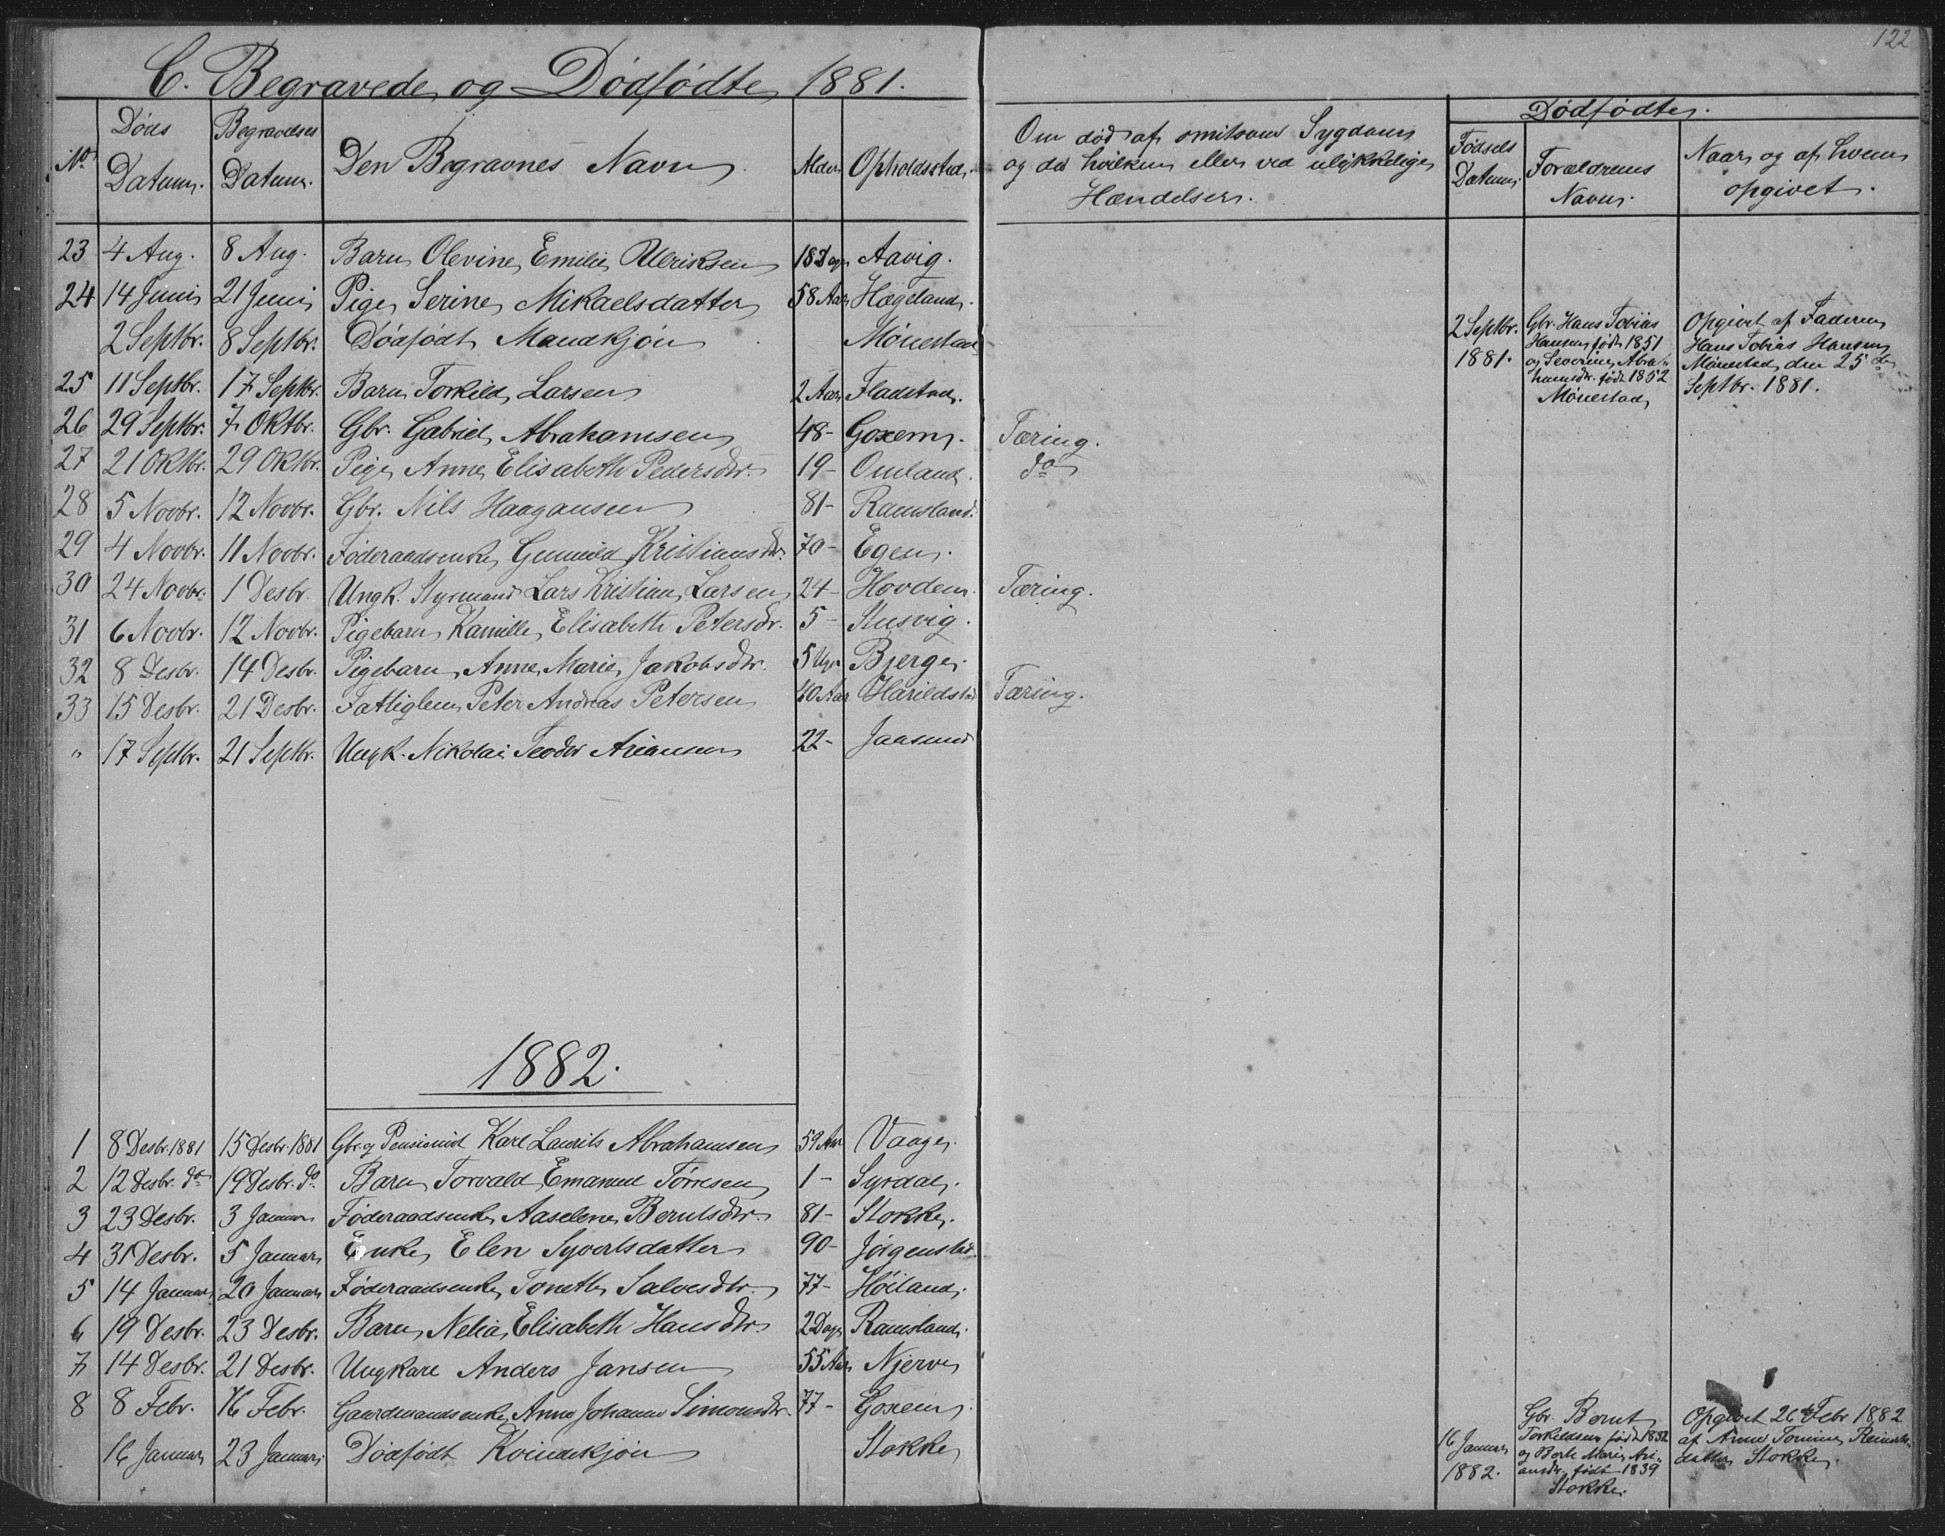 122
C. Begravede og Dødfødte 1881.
No | Døds Datum. | Begravelses Datum. | Den Begravnes Navn. | Alder | Opholdssted. | Om død af smitsom Sygdom og da hvilken eller ved ulykkelige Hændelser. | Dødfødte. Fødsels Datum. | Forældrenes Navn. | Naar og af hvem opgivet.
23 | 4 Aug. | 8 Aug. | Barn Olevine Emilie Ulriksen | 18 Dage | Aavig.
24 | 14 Juni | 21 Juni | Pige Serine Mikaelsdatter | 58 Aar | Hægeland.
2 Septbr. | 8 Septbr. | Dødfødt Mandkjøn | Mønestad | 2 Septbr. 1881. | Gbr. Hans Tobias Hansen født 1851 og Severine Abrahamsdr. født 1852 Mønestad | Opgivet af Faderen Hans Tobias Hansen Mønestad den 25de Septbr. 1881.
25 | 11 Septbr. | 17 Septbr. | Barn Torkild Larsen | 2 Aar | Fladstad.
26 | 29 Septbr. | 7 Oktbr. | Gbr. Gabriel Abrahamsen | 48 - | Goxem. | Tæring.
27 | 21 Oktbr. | 29 Oktbr. | Pige Anne Elisabeth Pedersdtr. | 19 - | Omland. | do
28 | 5 Novbr. | 12 Novbr. | Gbr. Nils Haagansen | 81 - | Ramsland.
29 | 4 Novbr. | 11 Novbr. | Føderaadsenke Gunnild Kristiansdtr. | 70 - | Egen.
30 | 24 Novbr. | 1 Desbr. | Ungk. Styrmand Lars Kristian Larsen | 24 - | Hovdem. | Tæring.
31 | 6 Novbr. | 12 Novbr. | Pigebarn Kamille Elisabeth Petersdr. | 5 - | Snsvig.
32 | 8 Desbr. | 14 Desbr. | Pigebarn Anne Marie Jakobsdtr. | 5 Uger | Bjerge.
33 | 15 Desbr. | 21 Desbr. | Fattiglem Peter Andreas Petersen | 40 Aar | Harildstad | Tæring.
" | 17 Septbr. | 21 Septbr. | Ungk. Nikolai Teodor Ariansen | 22 - | Jaasund
1882.
1 | 8 Desbr. 1881 | 15 Desbr. 1881 | Gbr. og Pensionist Karl Laurits Abrahamsen | 59 Aar | Vaage.
2 | 12 Desbr. do | 19 Desbr. do | Barn Torvald Emanuel Tørresen | 1 - | Syrdal.
3 | 23 Desbr. | 3 Januar | Føderaadsenke Aaselene Berntsdtr. | 81 - | Stokke.
4 | 31 Desbr. | 5 Januar | Enke Elen Syvertsdatter | 90 - | Jørgenstad.
5 | 14 Januar | 20 Januar | Føderaadsenke Tonette Salvesdtr. | 77 - | Høiland.
6 | 19 Desbr. | 23 Desbr. | Barn Nelia Elisabeth Hansdtr. | 2 Dage | Ramsland.
7 | 14 Desbr. | 21 Desbr. | Ungkarl Anders Jansen | 55 Aar | Njerve
8 | 8 Febr. | 16 Febr. | Gaardmandsenke Anne Johanne Simonsdtr. | 77 - | Goxem
16 Januar | 23 Januar | Dødfødt Kvindekjøn | Stokke | 16 Januar 1882. | Gbr. Bernt Torkildsen født 1832 og Berte Marie Ariansdr. født 1839 Stokke. | Opgivet 26de Febr 1882 af Anne Tomine Reinertsdatter Stokke.